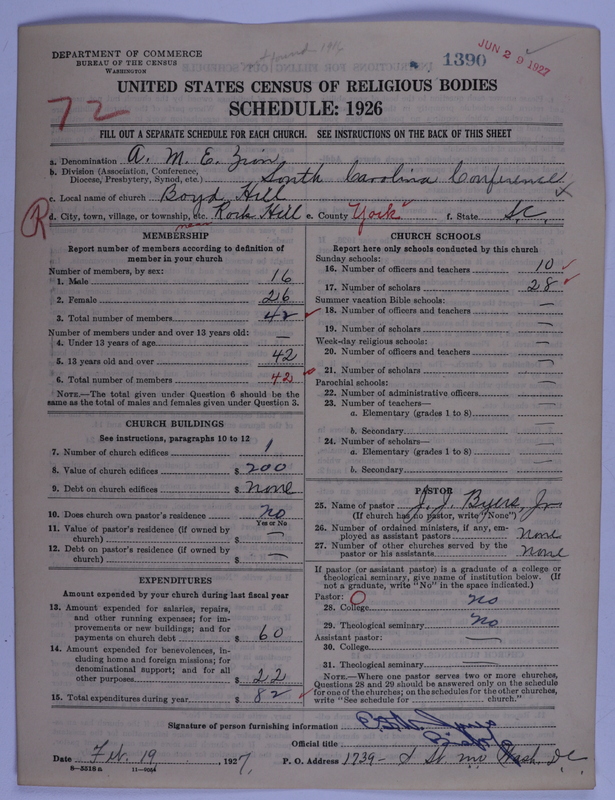 DEPARTMENT OF COMMERCE
BUREAU OF THE CENSUS
WASHINGTON
1390
JUN 29 1927
UNITED STATES CENSUS OF RELIGIOUS BODIES
72
SCHEDULE: 1926
FILL OUT A SEPARATE SCHEDULE FOR EACH CHURCH. SEE INSTRUCTIONS ON THE BACK OF THIS SHEET
a. Denomination A. M. E. Zion
b. Division (Association, Conference, Diocese, Presbytery, Synod, etc.) South Carolina Conference
c. Local name of church Boyd Hill
R d. City, town, village, or township, etc. near Rock Hill e. County York f. State S.C.
MEMBERSHIP
Report number of members according to definition of
member in your church
Number of members, by sex:
1. Male 16
2. Female 26
3. Total number of members 42
Number of members under and over 13 years old:
4. Under 13 years of age —
5. 13 years old and over 42
6. Total number of members 42
NOTE.—The total given under Question 6 should be the
same as the total of males and females given under Question 3.
CHURCH BUILDINGS
See instructions, paragraphs 10 to 12
7. Number of church edifices 1
8. Value of church edifices $ 200
9. Debt on church edifices $ none
10. Does church own pastor's residence no
Yes or No
11. Value of pastor's residence (if owned by
church) $ —
12. Debt on pastor's residence (if owned by
church) $ —
EXPENDITURES
Amount expended by your church during last fiscal year
13. Amount expended for salaries, repairs,
and other running expenses; for im-
provements or new buildings; and for
payments on church debt $ 60
14. Amount expended for benevolences, in-
cluding home and foreign missions; for
denominational support; and for all
other purposes $ 22
15. Total expenditures during year $ 82
CHURCH SCHOOLS
Report here only schools conducted by this church
Sunday schools:
16. Number of officers and teachers 10
17. Number of scholars 28
Summer vacation Bible schools:
18. Number of officers and teachers —
19. Number of scholars —
Week-day religious schools:
20. Number of officers and teachers —
21. Number of scholars —
Parochial schools:
22. Number of administrative officers —
23. Number of teachers—
a. Elementary (grades 1 to 8) —
b. Secondary —
24. Number of scholars—
a. Elementary (grades 1 to 8) —
b. Secondary —
PASTOR
25. Name of pastor J. J. Byers, Jr
(If church has no pastor, write "None")
26. Number of ordained ministers, if any, em-
ployed as assistant pastors None
27. Number of other churches served by the
pastor or his assistants None
If pastor (or assistant pastor) is a graduate of a college or
theological seminary, give name of institution below. (If
not a graduate, write "No" in the space indicated.)
Pastor: O
28. College no
29. Theological seminary No
Assistant pastor: —
30. College
31. Theological seminary —
NOTE.—Where one pastor serves two or more churches,
Questions 28 and 29 should be answered only on the schedule
for one of the churches; on the schedules for the other churches,
write "See schedule for church."
Signature of person furnishing information
Official title Bishop
Date Feb. 19, 1927. P. O. Address 1739- St. Wash. D.C.
8—5518a 11—9054